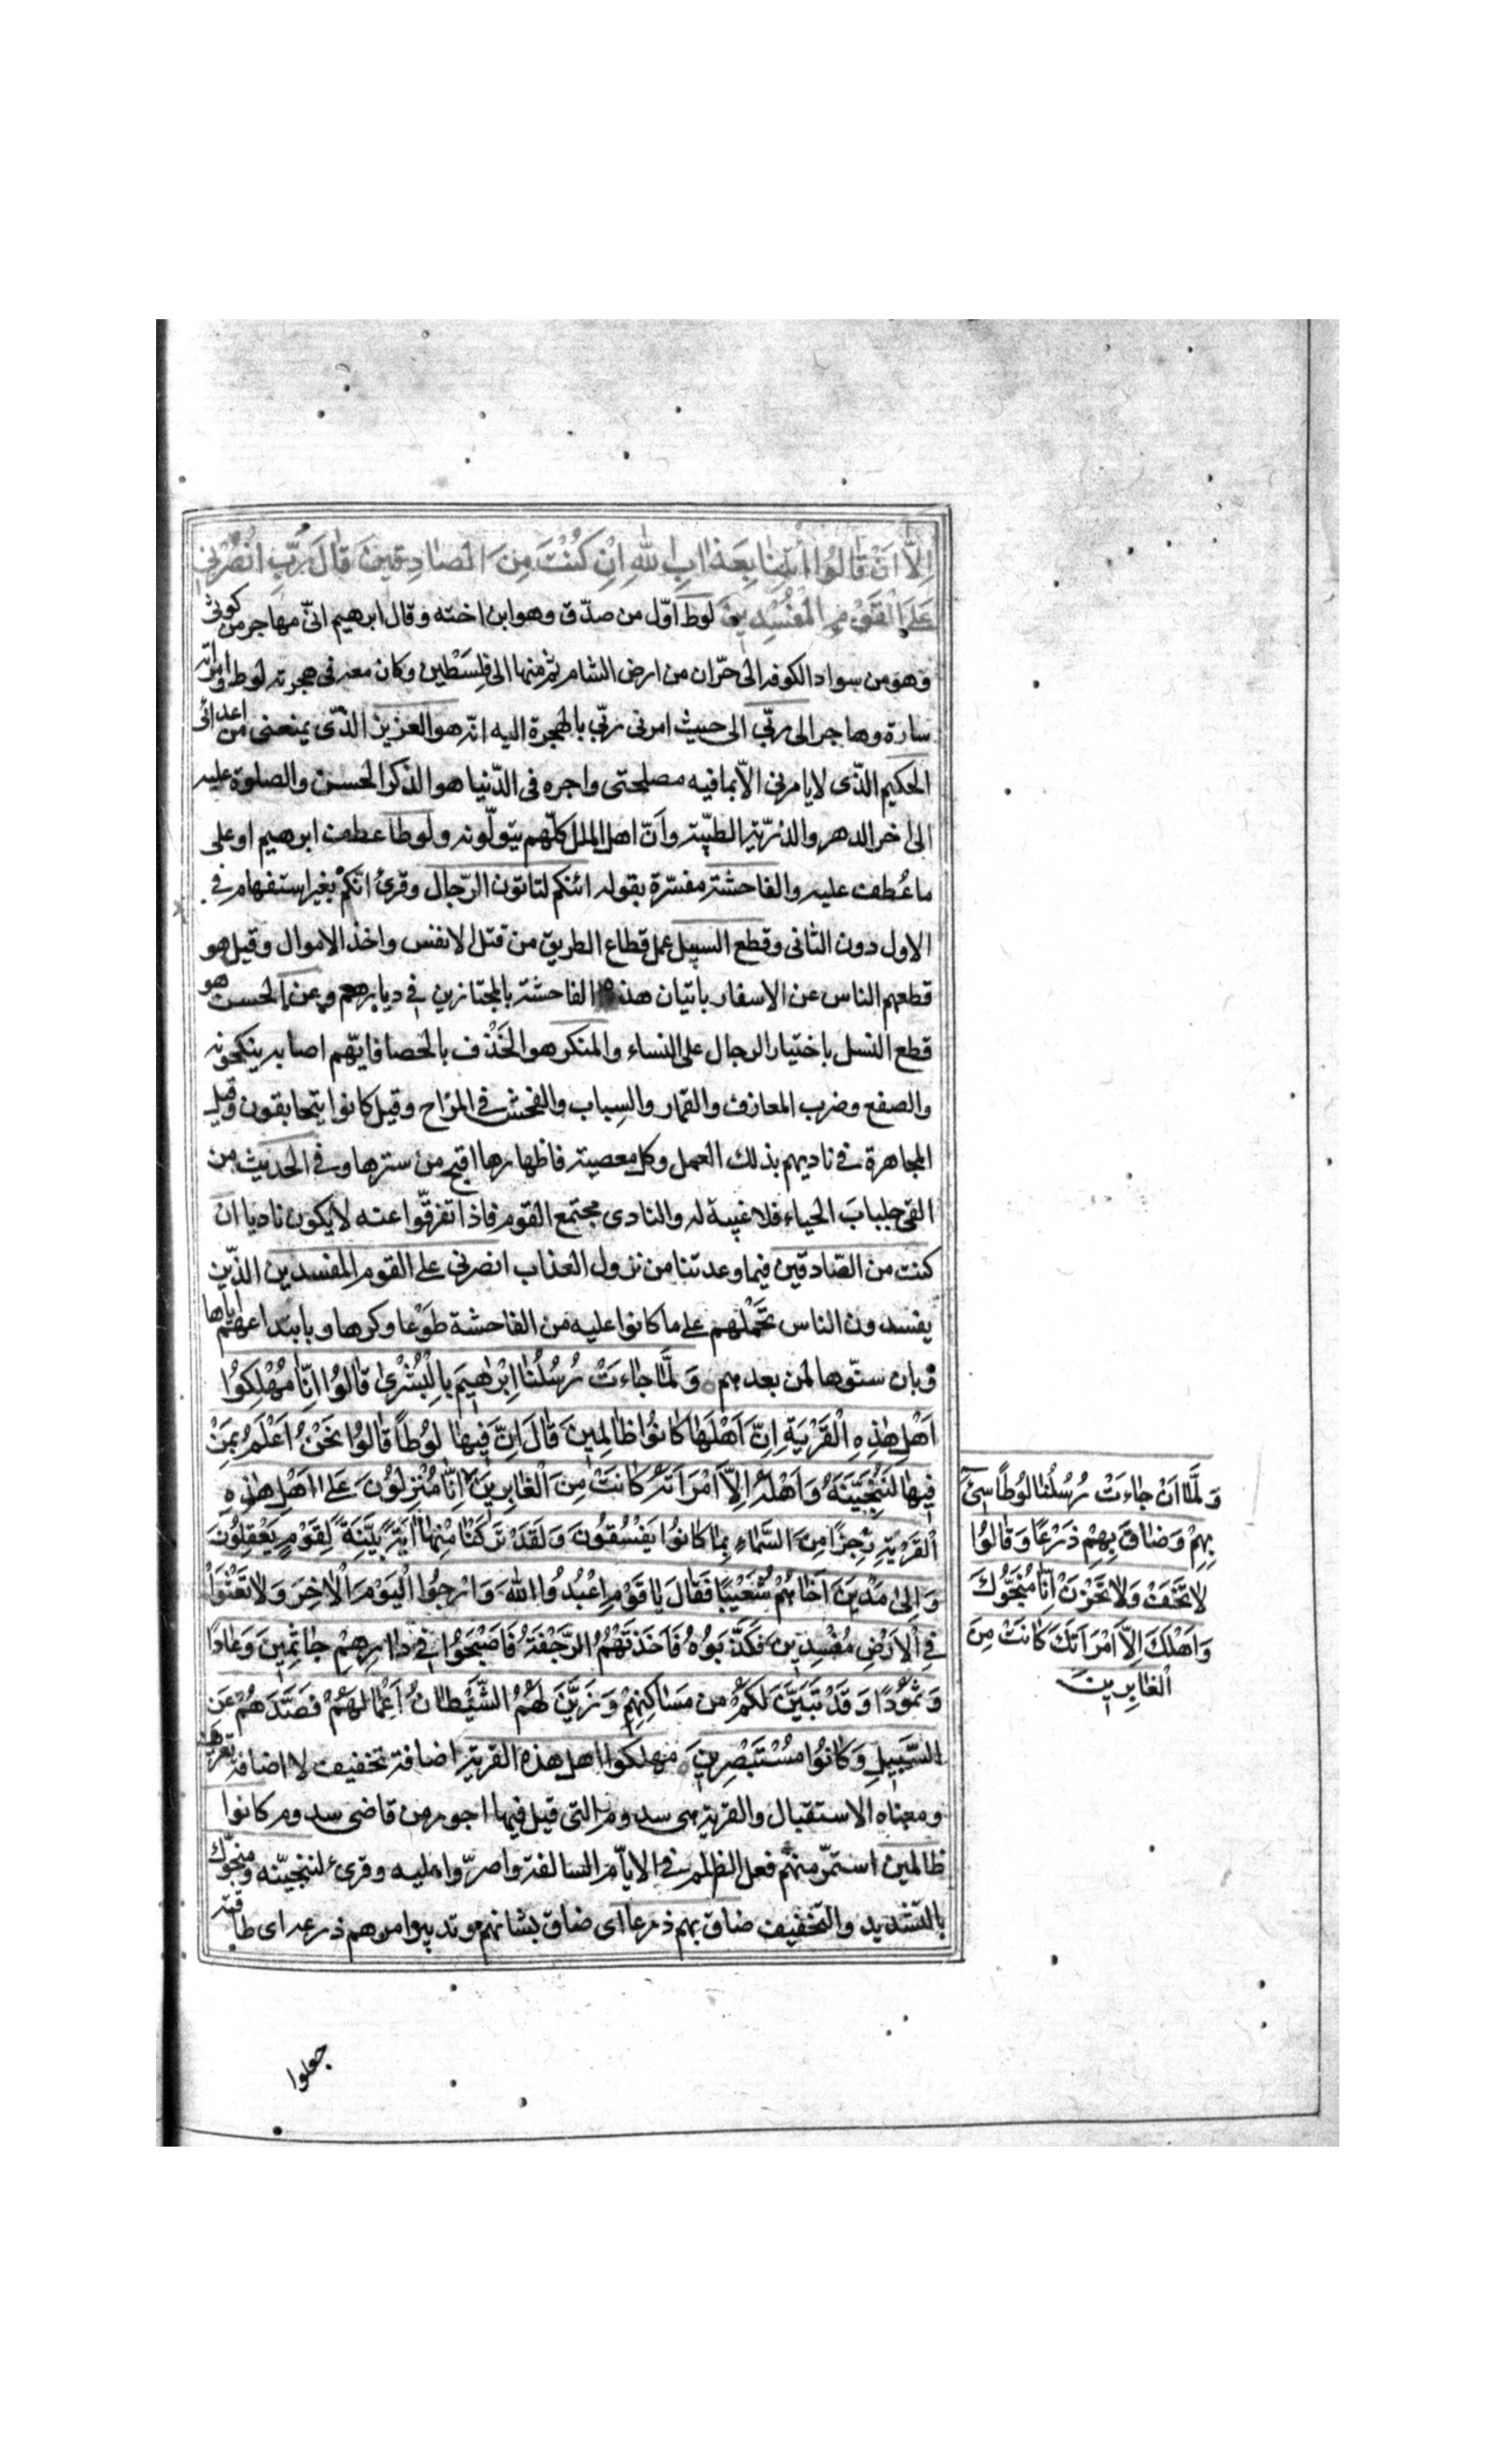 اِلَّا اَنْ قَالُوا ائْتِنٰا بِعَذٰابِ اللهِ اِنْ كُنْتَ مِنَ الصّٰادِقِينَ قٰالَ رَبِّ انْصُرْنِي
عَلَى الْقَوْمِ الْمُفْسِدِينَ لوط اوّل من صدّق وهو ابن اخته وقال ابرهيم انّى مهاجر من كوثى
وهو من سواد الكوفه الى حرّان من ارض الشام ثم منها الى فِلِسْطين وكان معه فى هجرته لوط وامراته
سارة وهاجر الى ربّى الى حيث امرنى ربّى بالهجرة اليه انّه هو العزيز الذّى يمنعنى من اعدائى
الحكيم الذّى لا يامرنى الاّ بما فيه مصلحتى واجره فى الدّنيا هو الذكر الحسن والصلوة عليه
الى اخر الدهر والذرّيّة الطيّبة وانّ اهل الملل كلّهم يتولّونه ولوطا عطف ابرهيم او على
ما عُطف عليه والفاحشة مفسّرة بقوله ائنكم لتاتون الرّجال وقرئ انّكم بغير استفهام فى
الاول دون الثانى وقطع السبيل عمل قطاع الطريق من قتل الانفس واخذ الاموال وقيل هو
قطعهم الناس عن الاسفار باتيان هذه الفاحشة بالمجتازين فى ديارهم وعن الحسن هو
قطع النسل باختيار الرجال على النساء والمنكر هو الخَذْف بالحصا فايّهم اصابه ينكحونه
والصفع وضرب المعازف والقمار والسِباب والفحش فى المزاح وقيل كانوا يتحابقون وقيل
المجاهرة فى ناديهم بذلك العمل وكل معصية فاظهارها اقبح من سترها وفى الحديث من
القى جلباب الحياء فلا غيبة له والنادى مجتمع القوم فاذا تفرقّوا عنه لا يكون ناديا ان
كنت من الصّادقين فيما وعدتنا من نزول العذاب انصرنى على القوم المفسدين الذّين
يفسدون الناس بحَمْلهم على ما كانوا عليه من الفاحشة طَوْعا وكرها وبابتداعهم اياها
وبان سنّوها لمن بعدهم وَلَمَّا جٰاءَتْ رُسُلُنٰا اِبْرٰهِيمَ بِالْبُشْرٰى قٰالُوا اِنّٰا مُهْلِكُوا
اَهْلِ هٰذِهِ الْقَرْيَةِ اِنَّ اَهْلَهٰا كٰانُوا ظٰالِمِينَ قٰالَ اِنَّ فِيهٰا لُوطًا قٰالُوا نَحْنُ اَعْلَمُ بِمَنْ
فِيهٰا لَنُنَجِّيَنَّهُ وَاَهْلَهُ اِلَّا امْرَاَتَهُ كٰانَتْ مِنَ الْغٰابِرِينَ اِنّٰا مُنْزِلُونَ عَلٰى اَهْلِ هٰذِهِ
الْقَرْيَةِ رِجْزًا مِنَ السَّمٰاءِ بِمٰا كٰانُوا يَفْسُقُونَ وَلَقَدْ تَرَكْنٰا مِنْهٰا اٰيَةً بَيِّنَةً لِقَوْمٍ يَعْقِلُونَ
وَاِلٰى مَدْيَنَ اَخٰاهُمْ شُعَيْبًا فَقٰالَ يٰا قَوْمِ اعْبُدُوا اللهَ وَارْجُوا الْيَوْمَ الْاٰخِرَ وَلٰا تَعْثَوْا
فِى الْاَرْضِ مُفْسِدِينَ فَكَذَّبُوهُ فَاَخَذَتْهُمُ الرَّجْفَةُ فَاَصْبَحُوا فِى دٰارِهِمْ جٰاثِمِينَ وَعٰادًا
وَثَمُودًا وَقَدْ تَبَيَّنَ لَكُمْ مِن مَسٰاكِنِهِمْ وَزَيَّنَ لَهُمُ الشَّيْطٰانُ اَعْمٰالَهُمْ فَصَدَّهُمْ عَنِ
السَّبِيلِ وَكٰانُوا مُسْتَبْصِرِينَ مهلكوا اهل هذه القرية اضافة تخفيف لا اضافة تعريف
ومعناه الاستقبال والقرية هى سدوم التى قيل فيها اجور من قاضى سدوم كانوا
ظالمين استمرّ منهم فعل الظلم فى الايّام السالفة واصرّوا عليه وقرئ لننجيّنه ومنجّوك
بالتشديد والتخفيف ضاق بهم ذرعا اى ضاق بشانهم وتدبير امرهم ذرعه اى طاقته
وَلَمَّا اَنْ جٰاءَتْ رُسُلُنٰا لُوطًا سِئَ
بِهِمْ وَضٰاقَ بِهِمْ ذَرْعًا وَقٰالُوا
لٰا تَخَفْ وَلٰا تَحْزَنْ اِنّٰا مُنَجُّوكَ
وَاَهْلَكَ اِلَّا امْرَاَتَكَ كٰانَتْ مِنَ
الْغٰابِرِينَ
جعلوا